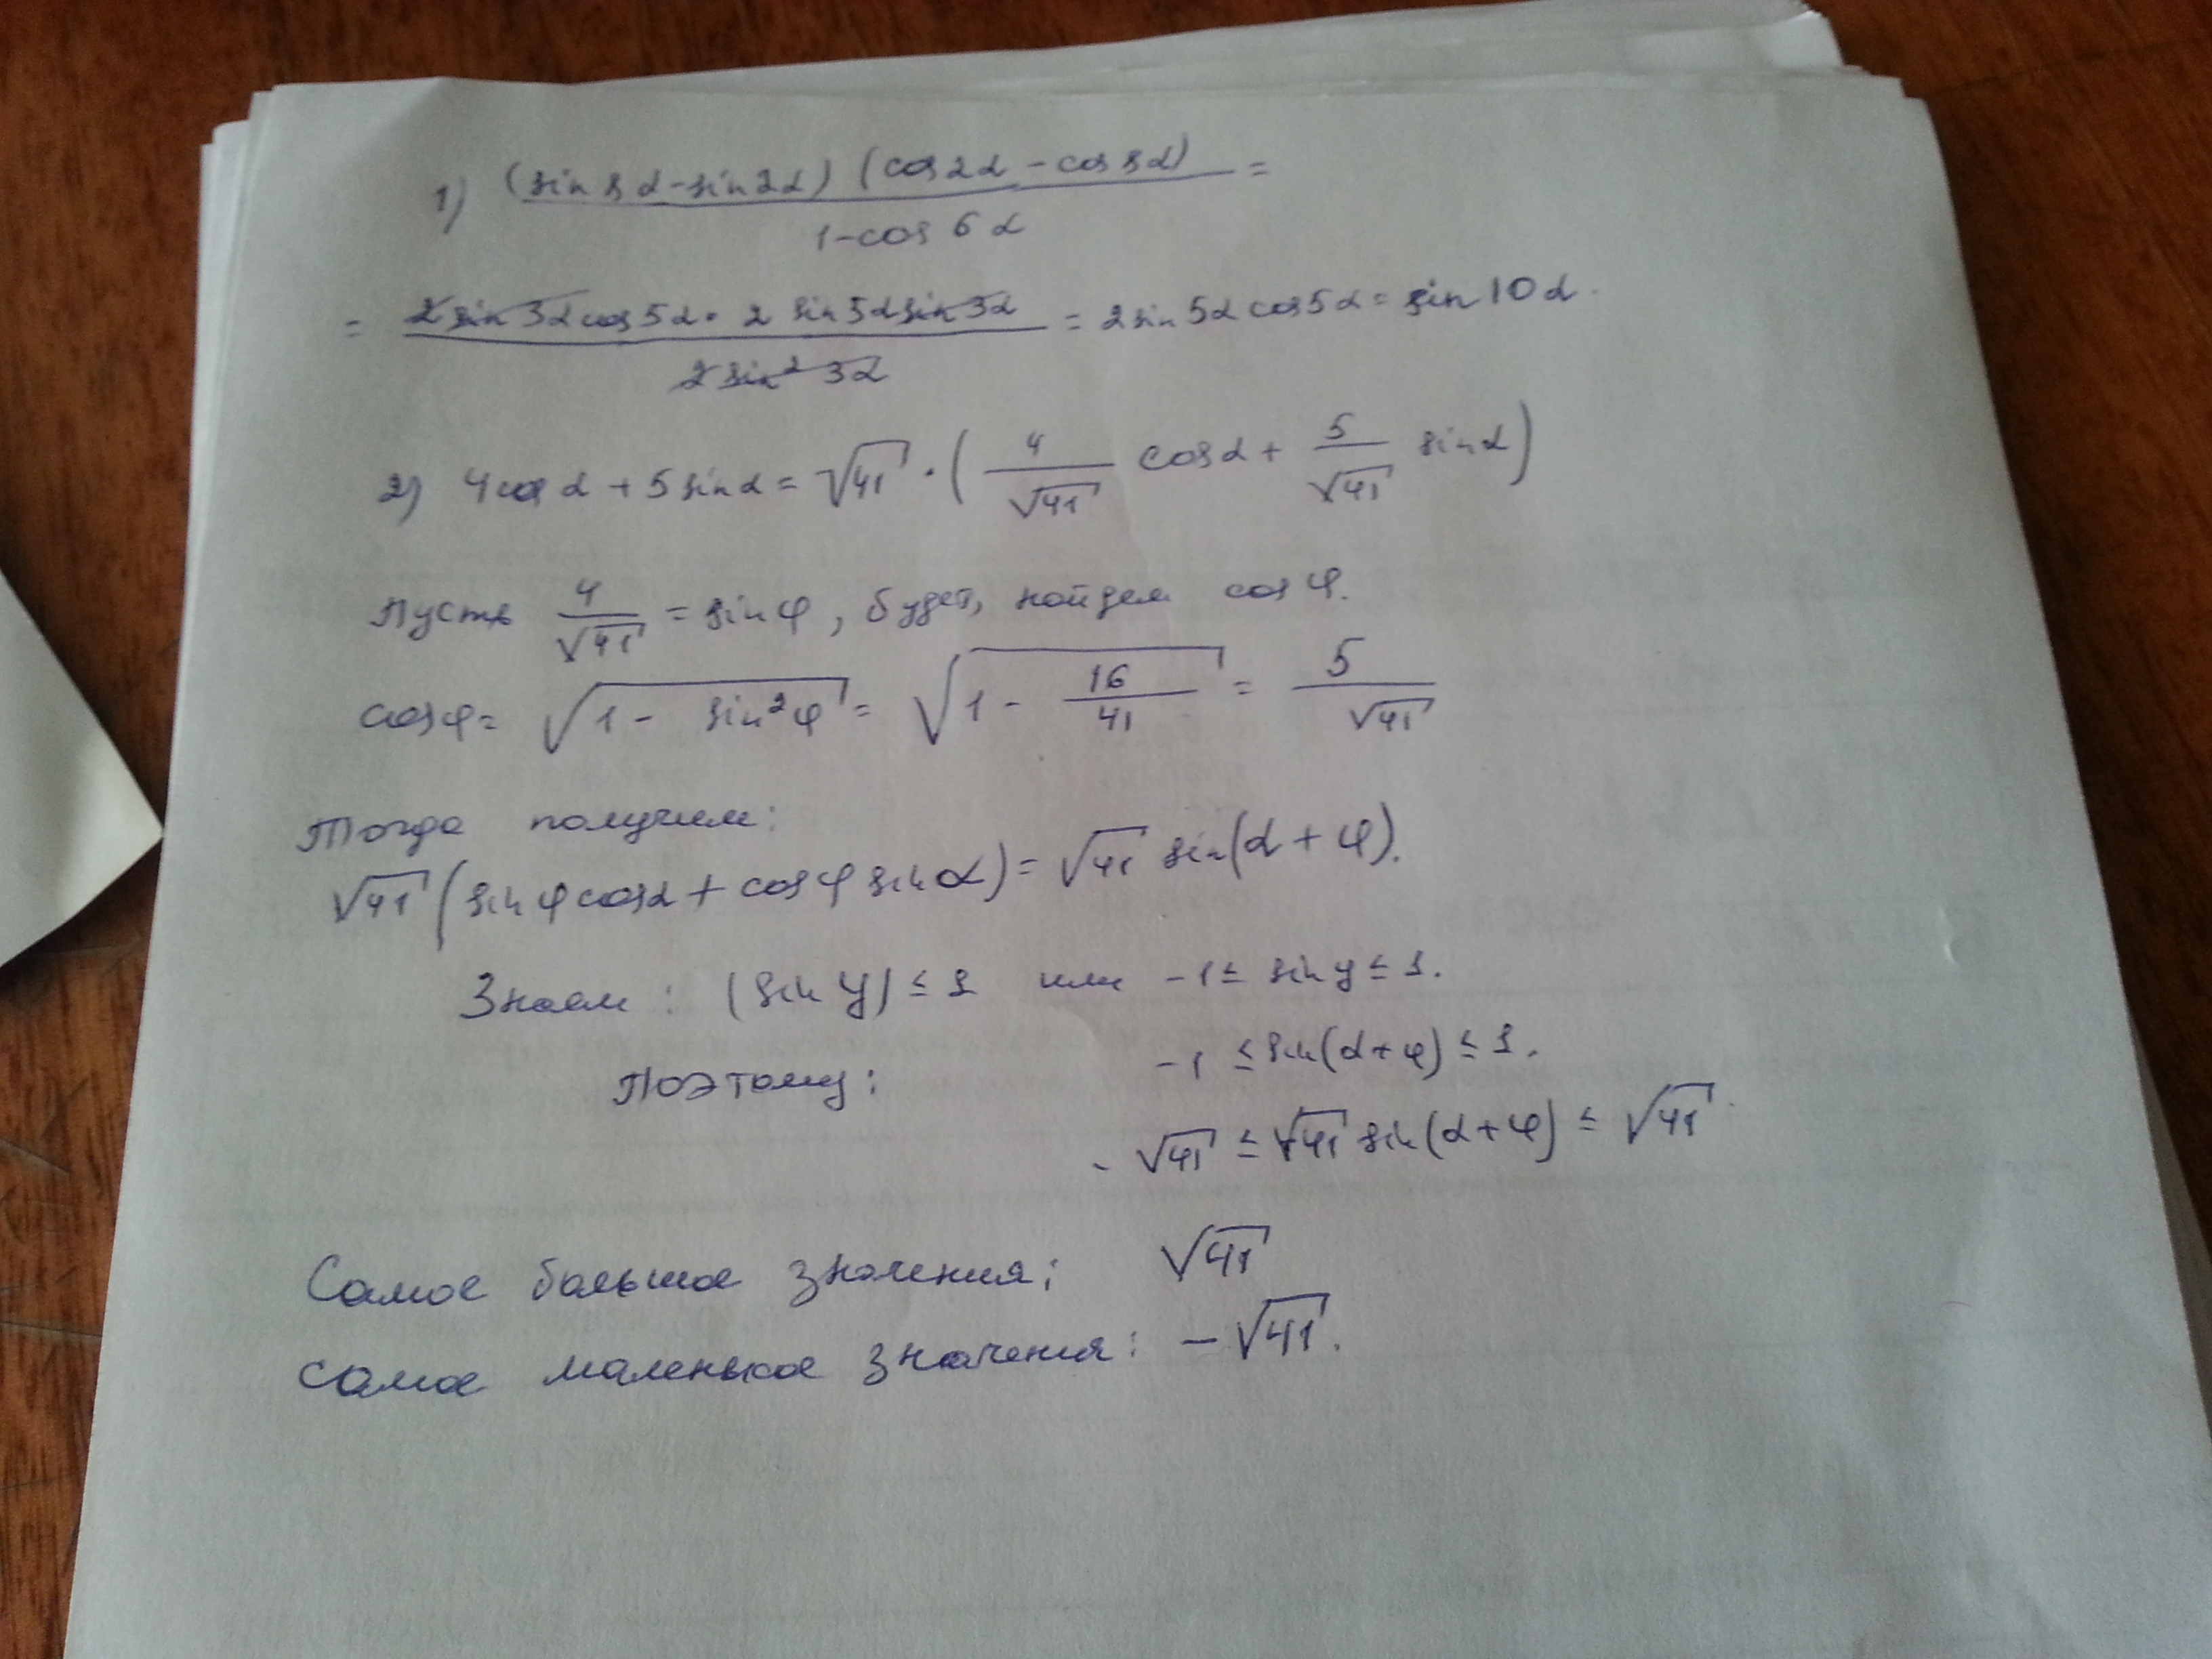 1) (sin 8α - sin 2α) (cos 2α - cos 8α) =
1 - cos 6α
= 2 sin 3α cos 5α · 2 sin 5α sin 3α = 2 sin 5α cos 5α = sin 10α.
2 sin² 3α
2) 4 cos α + 5 sin α = √41 · ( 4/√41 cos α + 5/√41 sin α )
Пусть 4/√41 = sin φ, будет, найдем cos φ.
cos φ = √(1 - sin² φ) = √(1 - 16/41) = 5/√41
Тогда получим:
√41 (sin φ cos α + cos φ sin α) = √41 sin(α + φ).
Знаем: |sin y| ≤ 1 или -1 ≤ sin y ≤ 1.
Поэтому: -1 ≤ sin(α + φ) ≤ 1.
-√41 ≤ √41 sin(α + φ) ≤ √41.
Самое большое значения: √41
самое маленькое значения: -√41.